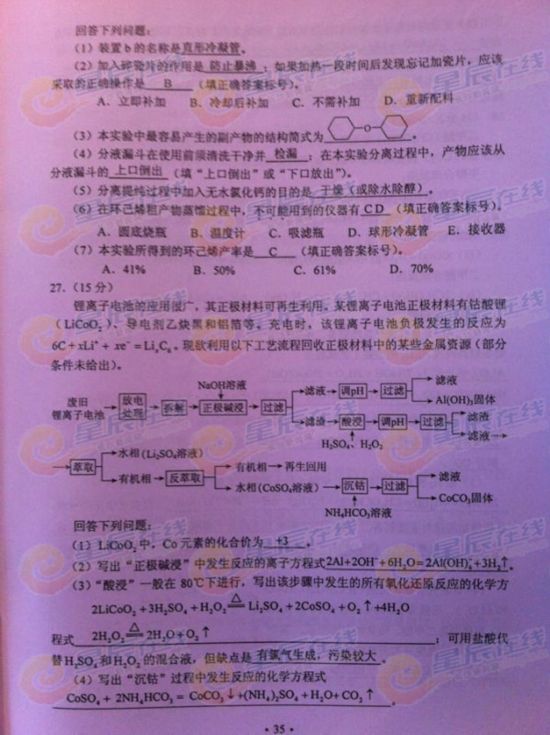 回答下列问题:
(1) 装置b的名称是直形冷凝管。
(2) 加入碎瓷片的作用是 防止暴沸 ;如果加热一段时间后发现忘记加瓷片,应该
采取的正确操作是 B (填正确答案标号)。
A. 立即补加 B. 冷却后补加 C. 不需补加 D. 重新配料
(3) 本实验中最容易产生的副产物的结构简式为 O 。
(4) 分液漏斗在使用前须清洗干净并 检漏 ;在本实验分离过程中,产物应该从
分液漏斗的 上口倒出 (填“上口倒出”或“下口放出”)。
(5) 分离提纯过程中加入无水氯化钙的目的是 干燥(或除水除醇) 。
(6) 在环己烯粗产物蒸馏过程中,不可能用到的仪器有 CD (填正确答案标号)。
A. 圆底烧瓶 B. 温度计 C. 吸滤瓶 D. 球形冷凝管 E. 接收器
(7) 本实验所得到的环己烯产率是 C (填正确答案标号)。
A. 41% B. 50% C. 61% D. 70%
27. (15分)
锂离子电池的应用很广,其正极材料可再生利用。某锂离子电池正极材料有钴酸锂
(LiCoO₂)、导电剂乙炔黑和铝箔等。充电时,该锂离子电池负极发生的反应为
6C + xLi⁺ + xe⁻ = LiₓC₆。现欲利用以下工艺流程回收正极材料中的某些金属资源(部分
条件未给出)。
废旧
锂离子电池 → 放电
处理 → 拆解 → 正极碱浸 → 过滤
NaOH溶液
滤液 → 调pH → 过滤 → 滤液
Al(OH)₃固体
滤渣 → 酸浸 → 调pH → 过滤 → 滤渣
滤液
H₂SO₄、H₂O₂
萃取 → 水相(Li₂SO₄溶液)
有机相 → 反萃取 → 有机相 → 再生回用
水相(CoSO₄溶液) → 沉钴 → 过滤 → 滤液
CoCO₃固体
NH₄HCO₃溶液
回答下列问题:
(1) LiCoO₂中,Co元素的化合价为 +3 。
(2) 写出“正极碱浸”中发生反应的离子方程式2Al+2OH⁻+6H₂O=2Al(OH)₄⁻+3H₂↑。
(3) “酸浸”一般在80℃下进行,写出该步骤中发生的所有氧化还原反应的化学方
2LiCoO₂+3H₂SO₄+H₂O₂ △ Li₂SO₄+2CoSO₄+O₂↑+4H₂O
程式 2H₂O₂ △ 2H₂O+O₂↑ ;可用盐酸代
替H₂SO₄和H₂O₂的混合液,但缺点是 有氯气生成,污染较大 。
(4) 写出“沉钴”过程中发生反应的化学方程式
CoSO₄ + 2NH₄HCO₃ = CoCO₃↓+(NH₄)₂SO₄+H₂O+CO₂↑ 。
·35·
星辰在线